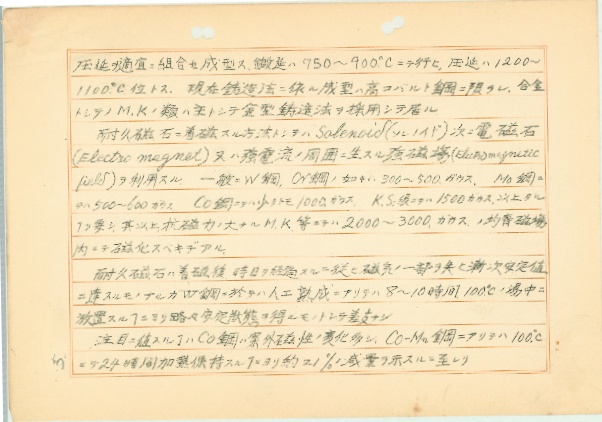 圧延ヲ適宜ニ組合セ成型ス、鍛延ハ750〜900℃ニテ行ヒ、圧延ハ1200〜
1100℃位トス. 現在鋳造法ニ依ル成型ハ高コバルト鋼ニ限ラレ、合金
トシテノM.K.ノ類ハ主トシテ金型鋳造法ヲ採用シテ居ル
耐久磁石ニ着磁スル方法トシテハSolenoid(ソレノイド)次ニ電磁石
(Electro magnet)又ハ強電流ノ周囲ニ生スル強磁場(Electromagnetic
field)ヲ利用スル 一般ニW鋼, Cr鋼ノ如キハ300〜500.ガウス. Mn鋼ニ
テハ500〜600ガウス Co鋼ニテハ少クトモ1000.ガウス. K.S.鋼ニテハ1500ガウス.以上タル
ヲ要シ.其以上抗磁力ノ大ナルM.K.等ニテハ2000〜3000.ガウス.ノ均斉磁場
内ニテ磁化スベキデアル.
耐久磁石ハ着磁後 時日ヲ経過スルニ従ヒ磁気ノ一部ヲ失ヒ漸次安定値
ニ達スルモノデルガW鋼ニ於テハ人工熟成ニアリテハ8〜10時間100℃ノ場中ニ
放置スルコニヨリ略々安定状態ヲ得ルモノトシテ差支ナシ
注目ニ値スルコハCo鋼ハ案外磁性ノ変化多シ. Co-Mn鋼ニアリテハ100℃
ニテ24時間加熱保持スルコニヨリ約21%ノ減量ヲ示スルニ至レリ